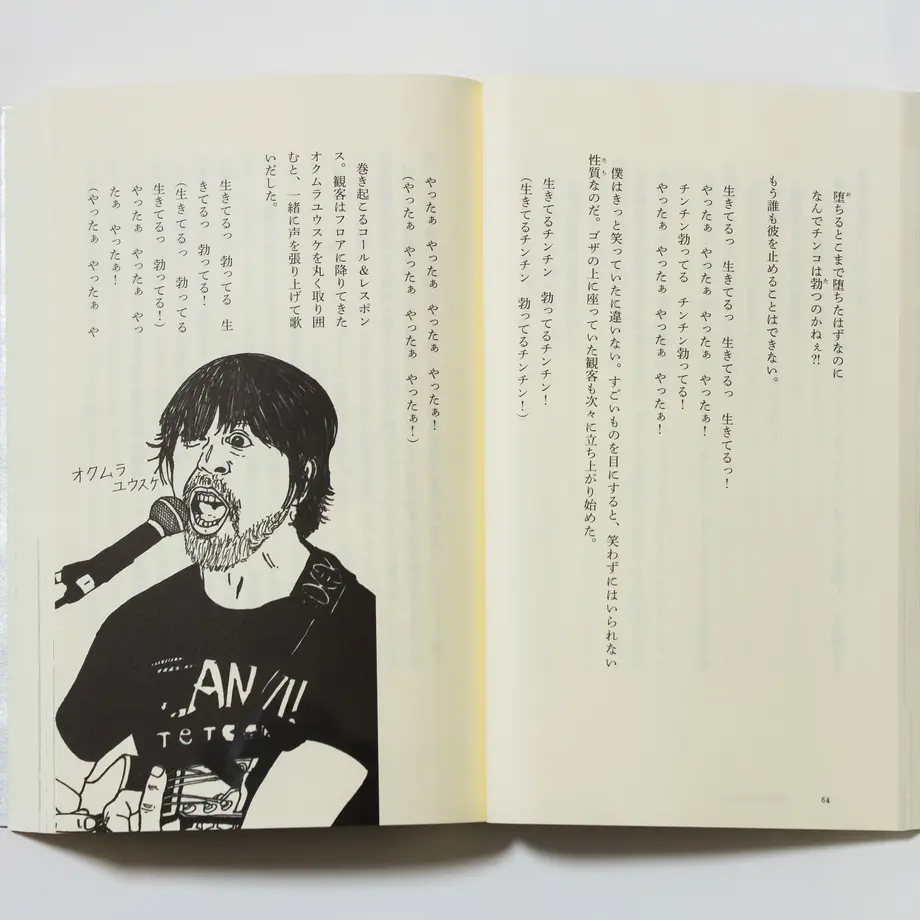 堕ちるとこまで堕ちたはずなのに
なんでチンコは勃つのかねぇ?!
もう誰も彼を止めることはできない。
生きてるっ 生きてるっ 生きてるっ!
やったぁ やったぁ やったぁ!
チンチン勃ってる チンチン勃ってる!
やったぁ やったぁ やったぁ!
僕はきっと笑っていたに違いない。すごいものを目にすると、笑わずにはいられない
性質なのだ。ゴザの上に座っていた観客も次々に立ち上がり始めた。
生きてるチンチン 勃ってるチンチン!
(生きてるチンチン 勃ってるチンチン!)
64
やったぁ やったぁ やったぁ やったぁ!
(やったぁ やったぁ やったぁ やったぁ!)
巻き起こるコール&レスポン
ス。観客はフロアに降りてきた
オクムラユウスケを丸く取り囲
むと、一緒に声を張り上げて歌
いだした。
生きてるっ 勃ってる 生
きてるっ 勃ってる!
(生きてるっ 勃ってる
生きてるっ 勃ってる!)
やったぁ やったぁ やっ
たぁ やったぁ!
(やったぁ やったぁ や
オクムラ
ユウスケ